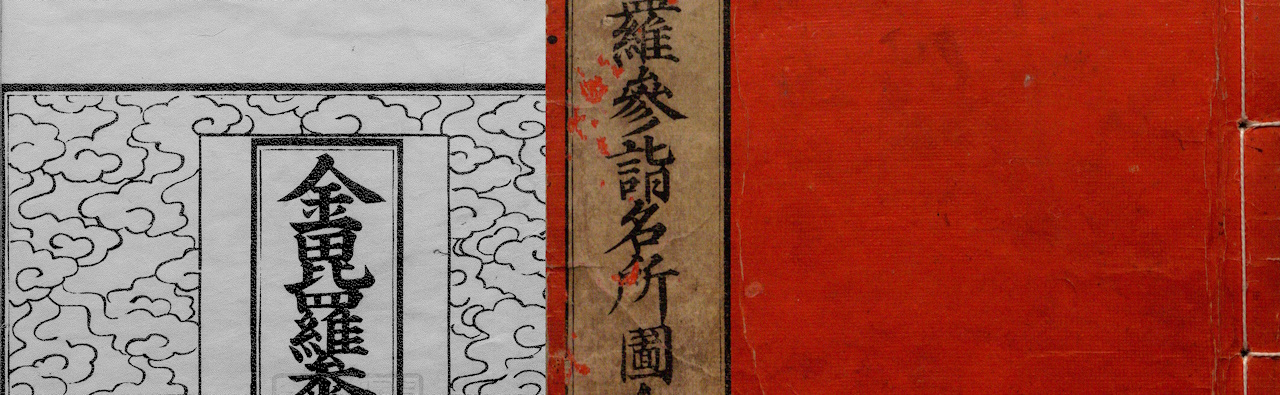 金毘羅參
羅參詣名所圖